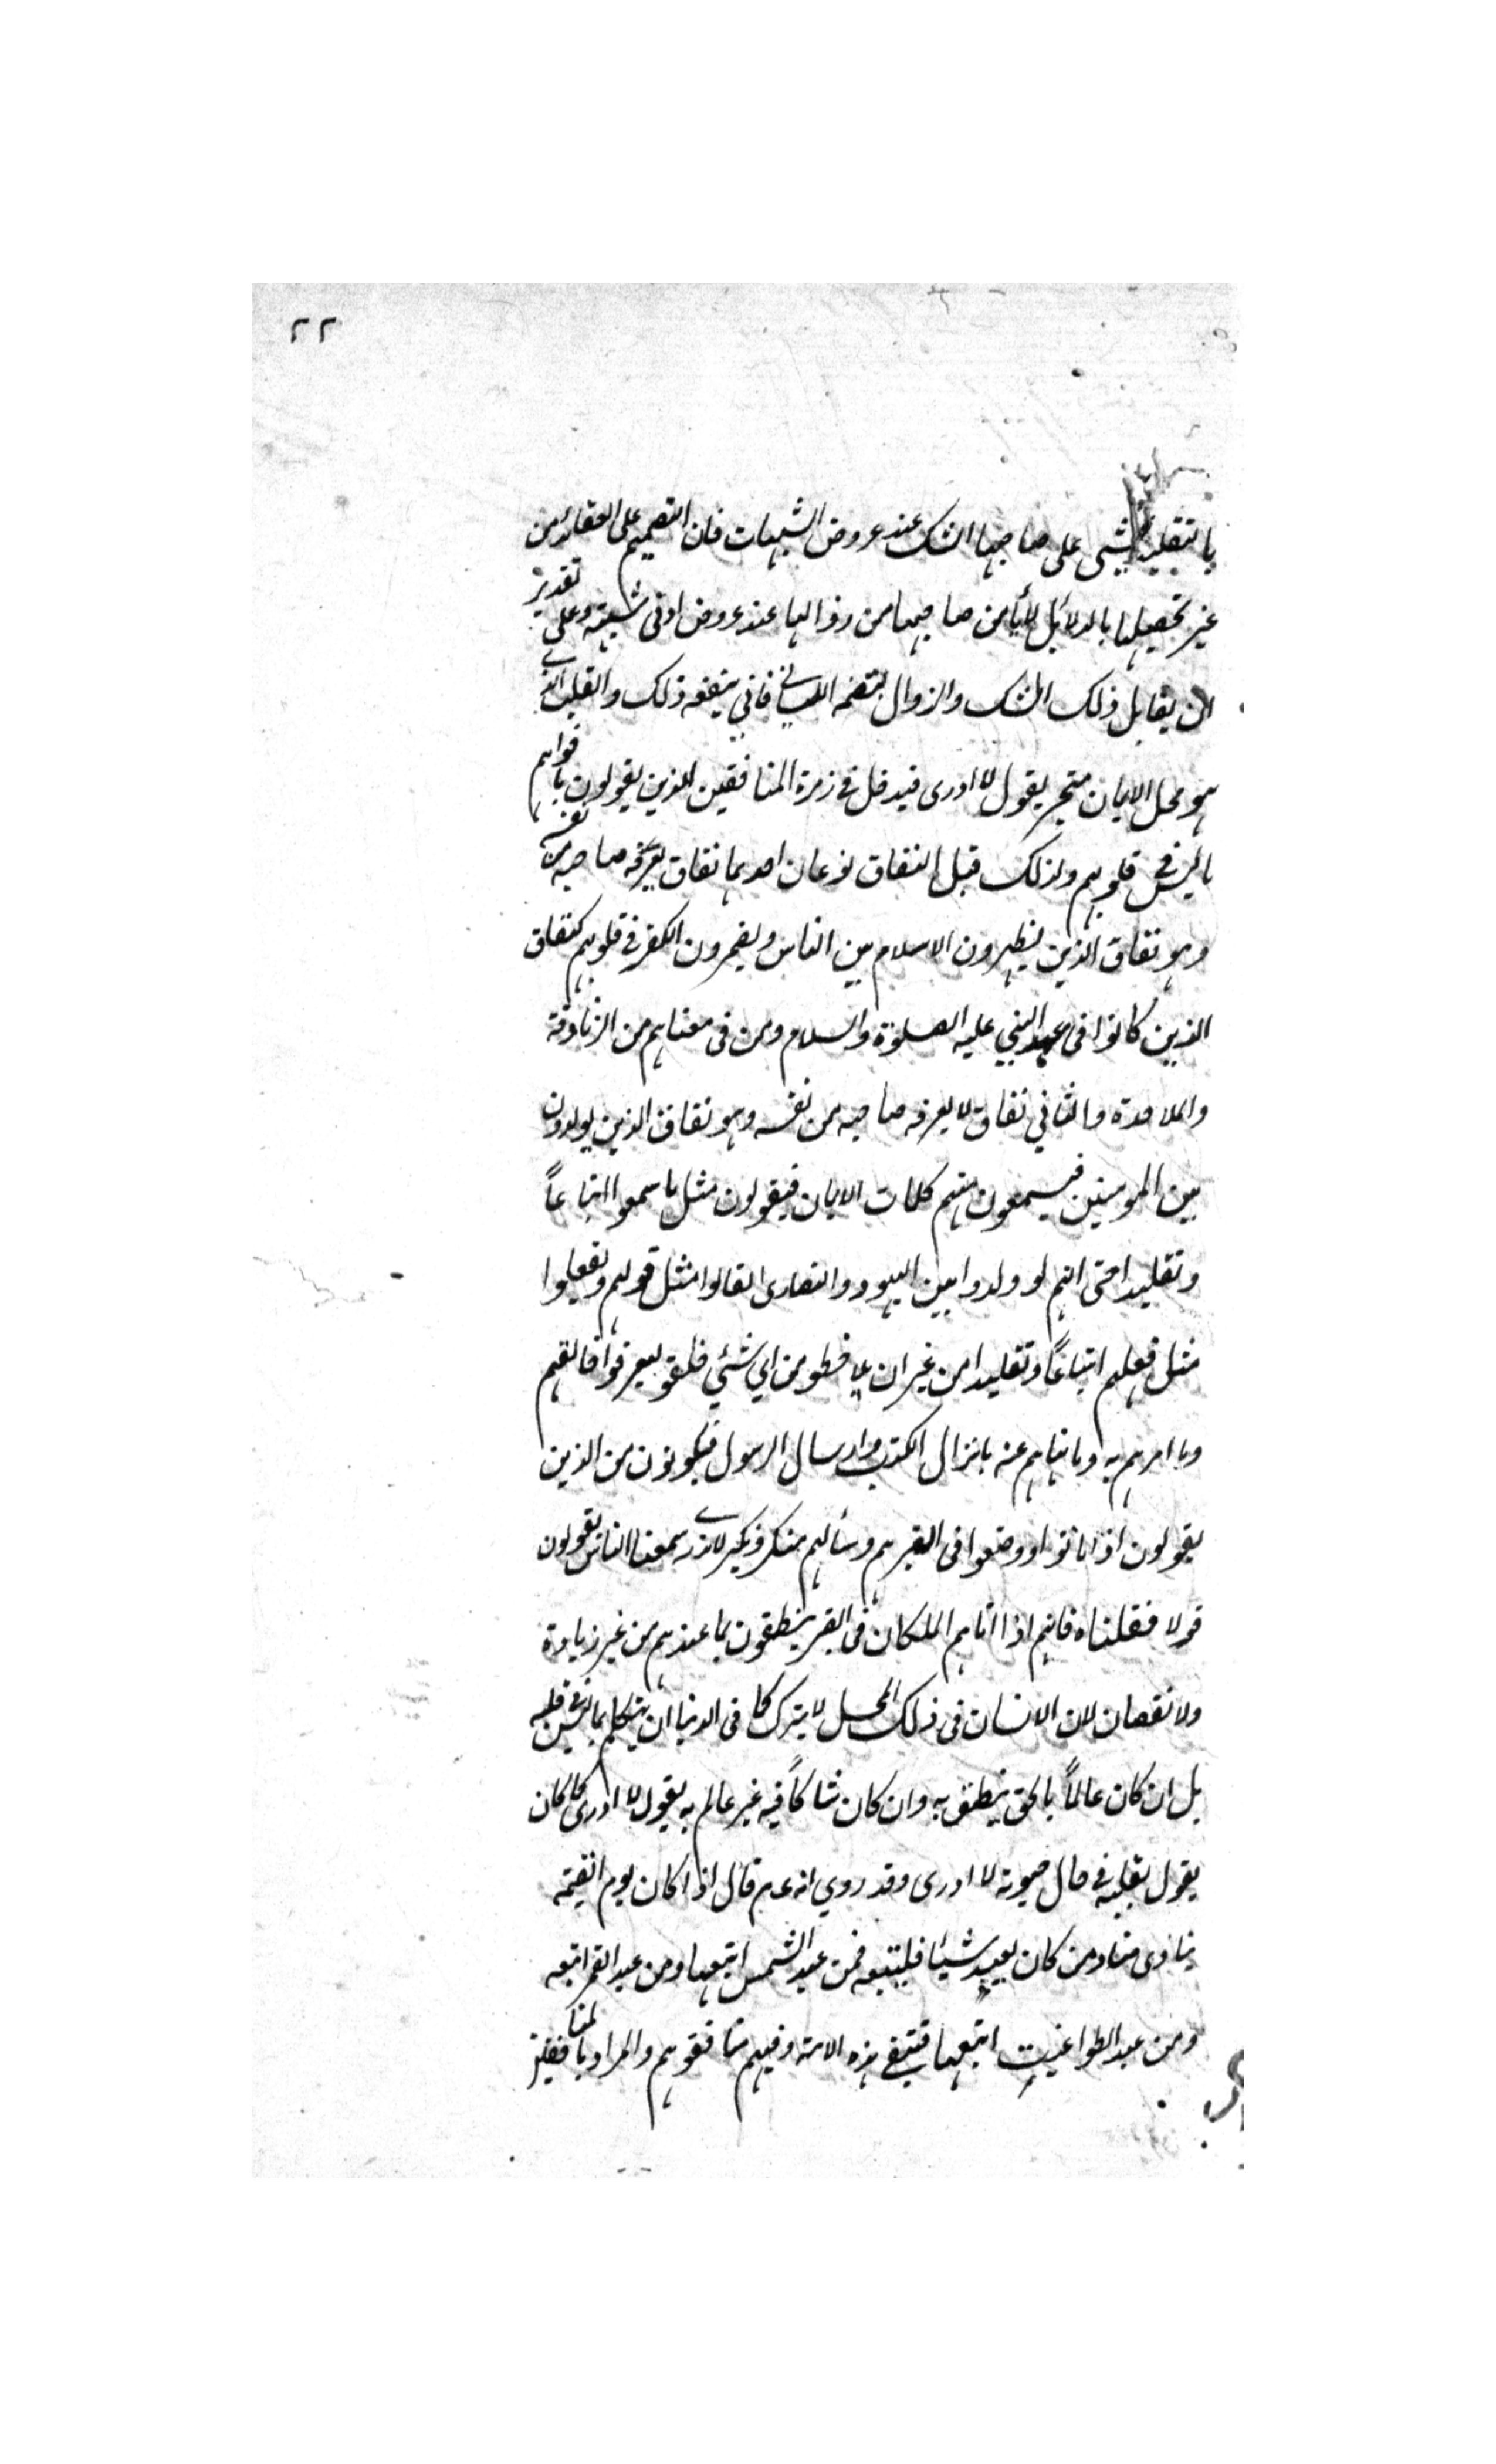 ٢٢
بالتقليد يخشى على صاحبها الشك عند عروض الشبهات فان التصميم على العقائد من
غير تحصيلها بالدلائل لا يأمن صاحبها من زوالها عند عروض ادنى شبهة وعلى تقدير
ان يقابل ذلك الشك والزوال بتصميم اللسان فاني ينفعه ذلك والقلب الذي
هو محل الايمان متحير يقول لا ادرى فيدخل في زمرة المنافقين الذين يقولون بافواههم
ما ليس في قلوبهم ولذلك قيل النفاق نوعان احدهما نفاق يعرفه صاحبه من نفسه
وهو نفاق الذين يظهرون الاسلام بين الناس ويضمرون الكفر في قلوبهم كنفاق
الذين كانوا في عهد النبي عليه الصلوة والسلام ومن في معناهم من الزنادقة
والملاحدة والثاني نفاق لا يعرفه صاحبه من نفسه وهو نفاق الذين يولدون
بين المومنين فيسمعون منهم كلمات الايمان فيقولون مثل ما سمعوا اتباعاً
وتقليدا حتى انهم لو ولدوا بين اليهود والنصارى لقالوا مثل قولهم وفعلوا
مثل فعلهم اتباعاً وتقليدا من غير ان من اي شئ خلقو ليعرفوا خالقهم
وما امرهم به وما نهاهم عنه بانزال الكتب وارسال الرسول فيكونون من الذين
يقولون اذا ماتوا ووضعوا في القبر وسألهم منكر ونكير لا ندرى سمعنا الناس يقولون
قولا فقلناه فانهم اذا اتاهم الملكان في القبر ينطقون بما عندهم من غير زيادة
ولا نقصان لان الانسان في ذلك المحل لا يترك كما في الدنيا ان يتكلم بما ليس في قلبه
بل ان كان عالماً بالحق ينطق به وان كان شاكاً فيه غير عالم به يقول لا ادرى كما كان
يقول بقلبه في حال حيوته لا ادرى وقد روي انه عم قال اذا كان يوم القيمة
ينادى مناد من كان يعبد شيئا فليتبعه فمن عبد الشمس اتبعها ومن عبد القمر اتبعه
ومن عبد الطواغيت اتبعها فتبقى هذه الامة وفيهم منافقوهم والمراد بالمنافقين